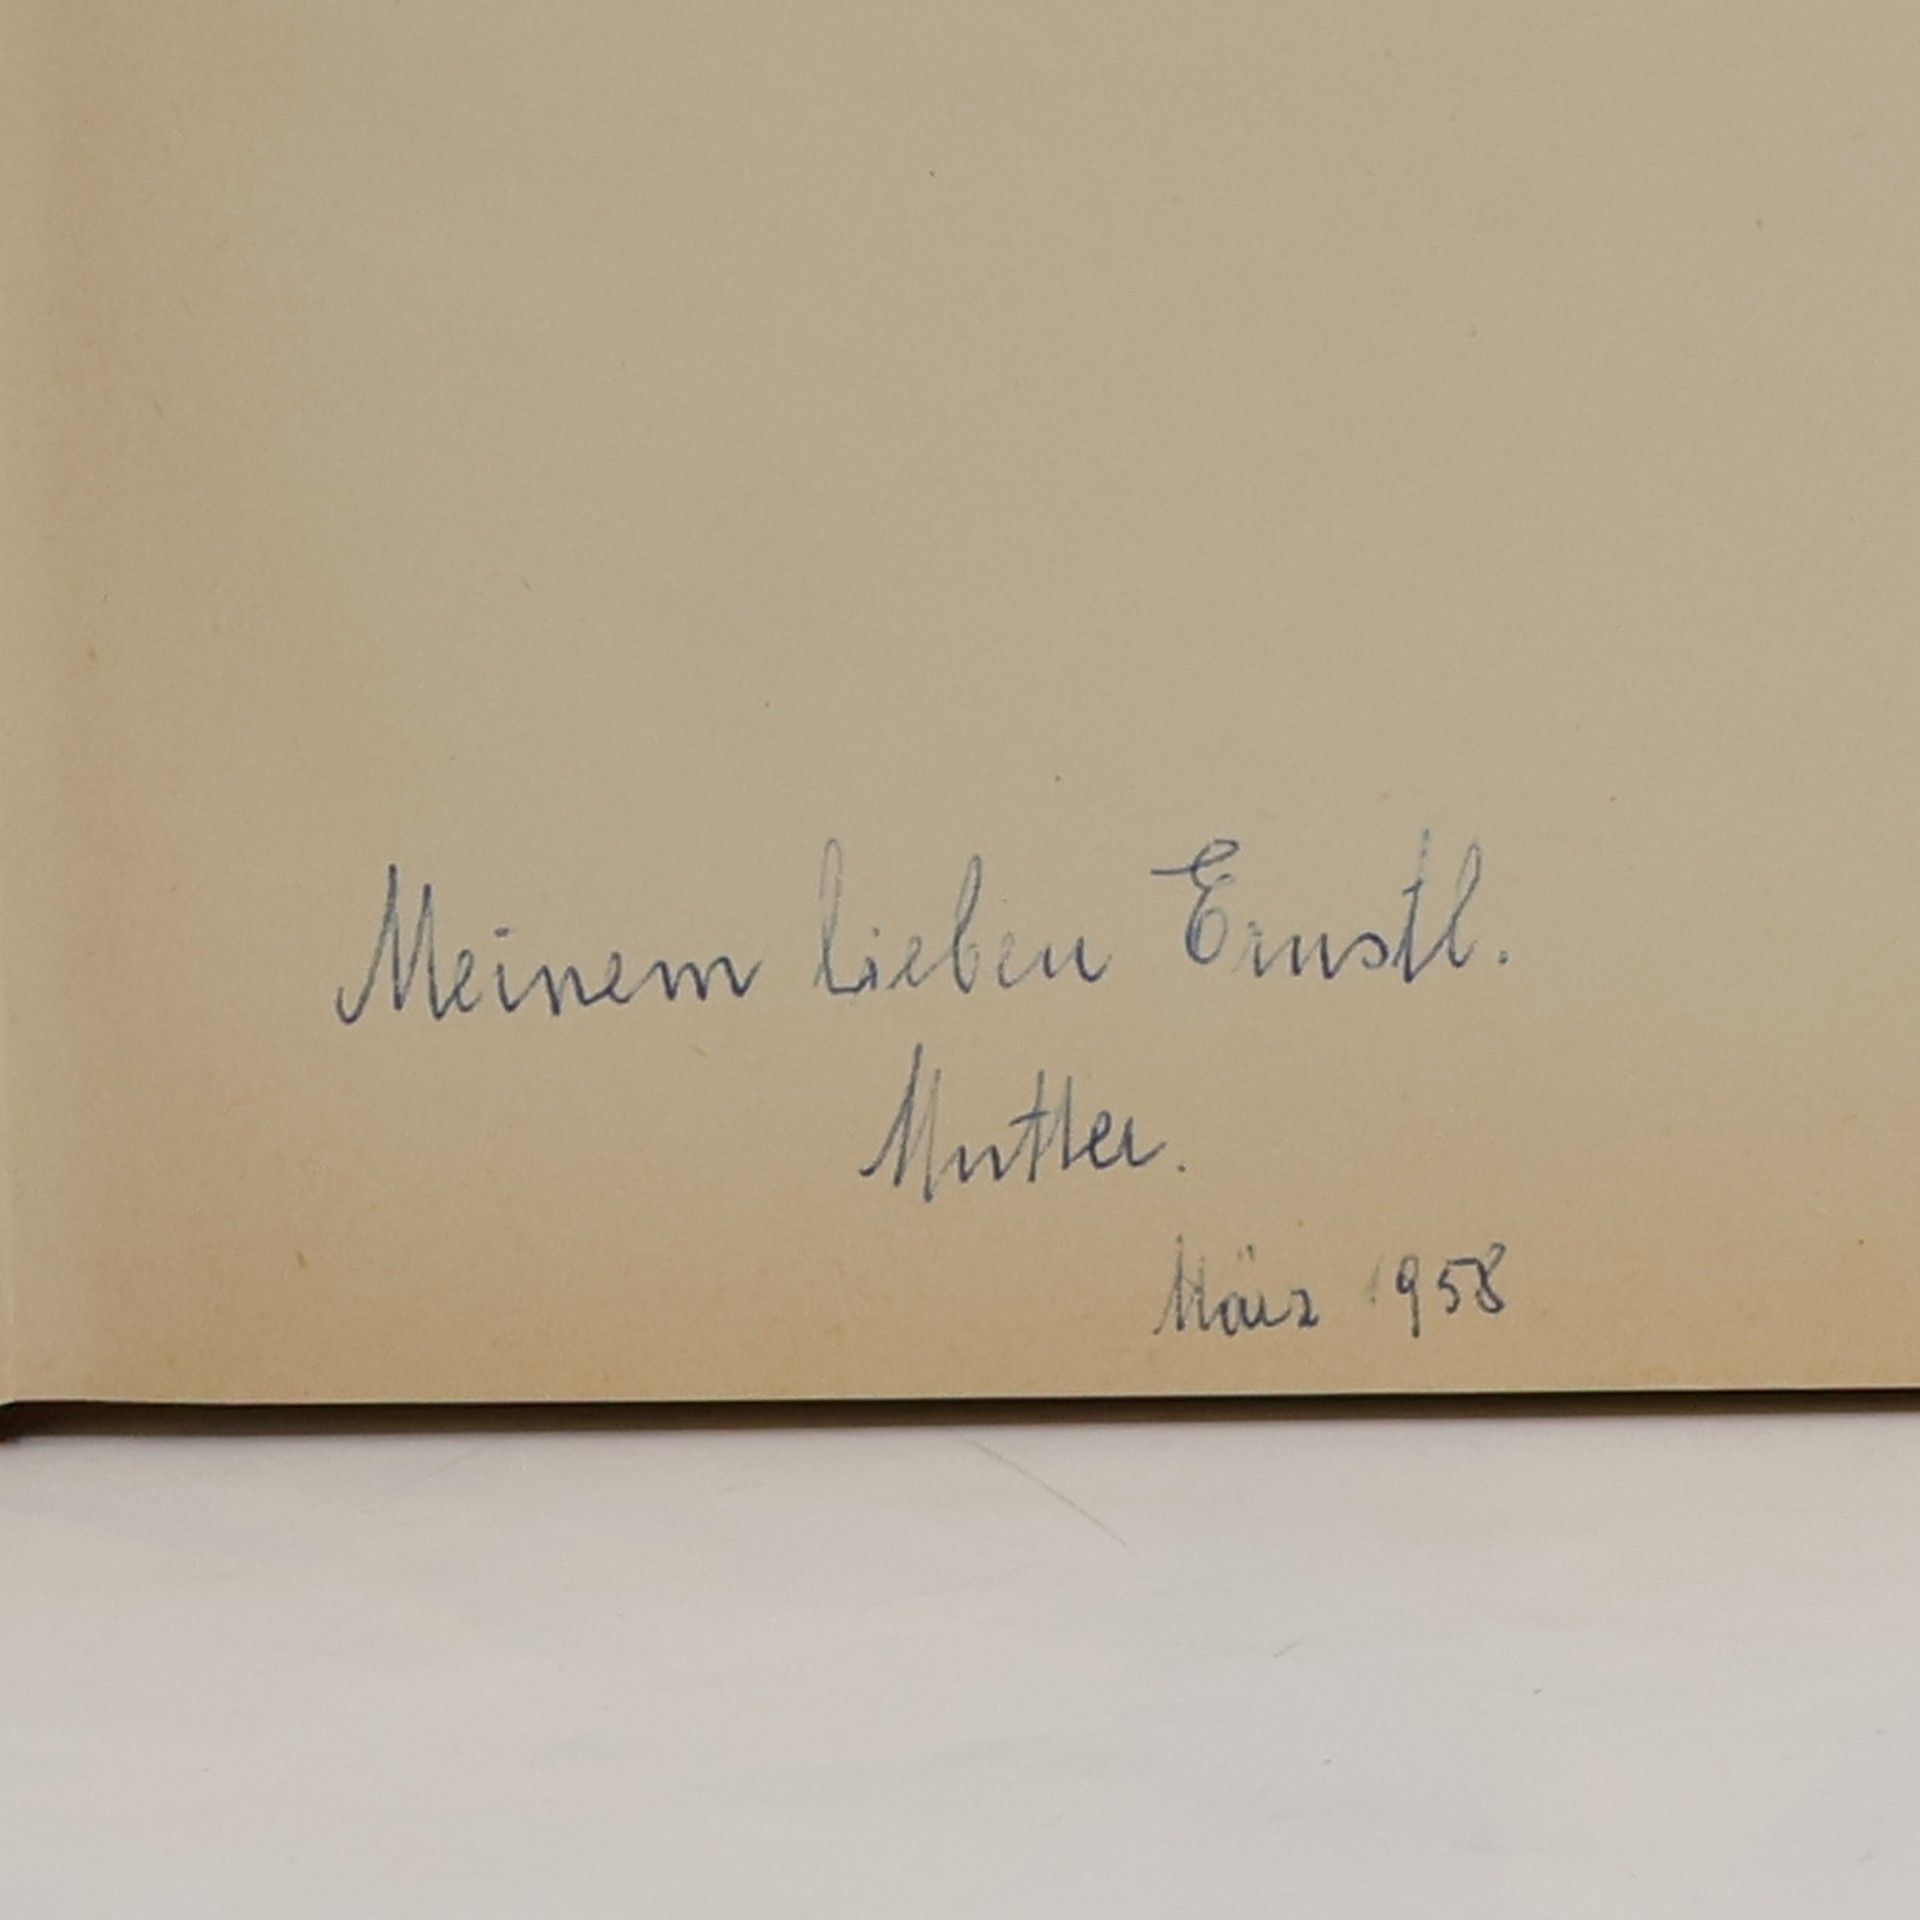 Meinem lieben Ernstl.
Mutter.
März 1958